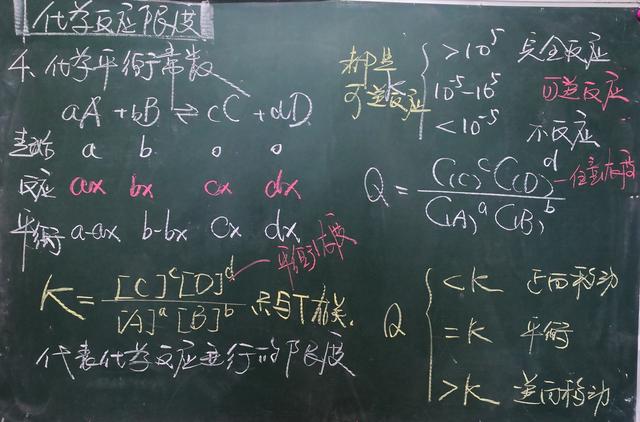 化学反应限度
4. 化学平衡常数
aA + bB ⇌ cC + dD
起始 a b 0 0
反应 ax bx cx dx
平衡 a-ax b-bx cx dx
K = [C]^c [D]^d / [A]^a [B]^b 只与T有关.
平衡浓度
代表化学反应进行的限度
都是
可逆反应
K
>10^5 完全反应
10^-5-10^5 可逆反应
<10^-5 不反应
Q = C(C)^c C(D)^d / C(A)^a C(B)^b
任意浓度
Q
<K 正向移动
=K 平衡
>K 逆向移动